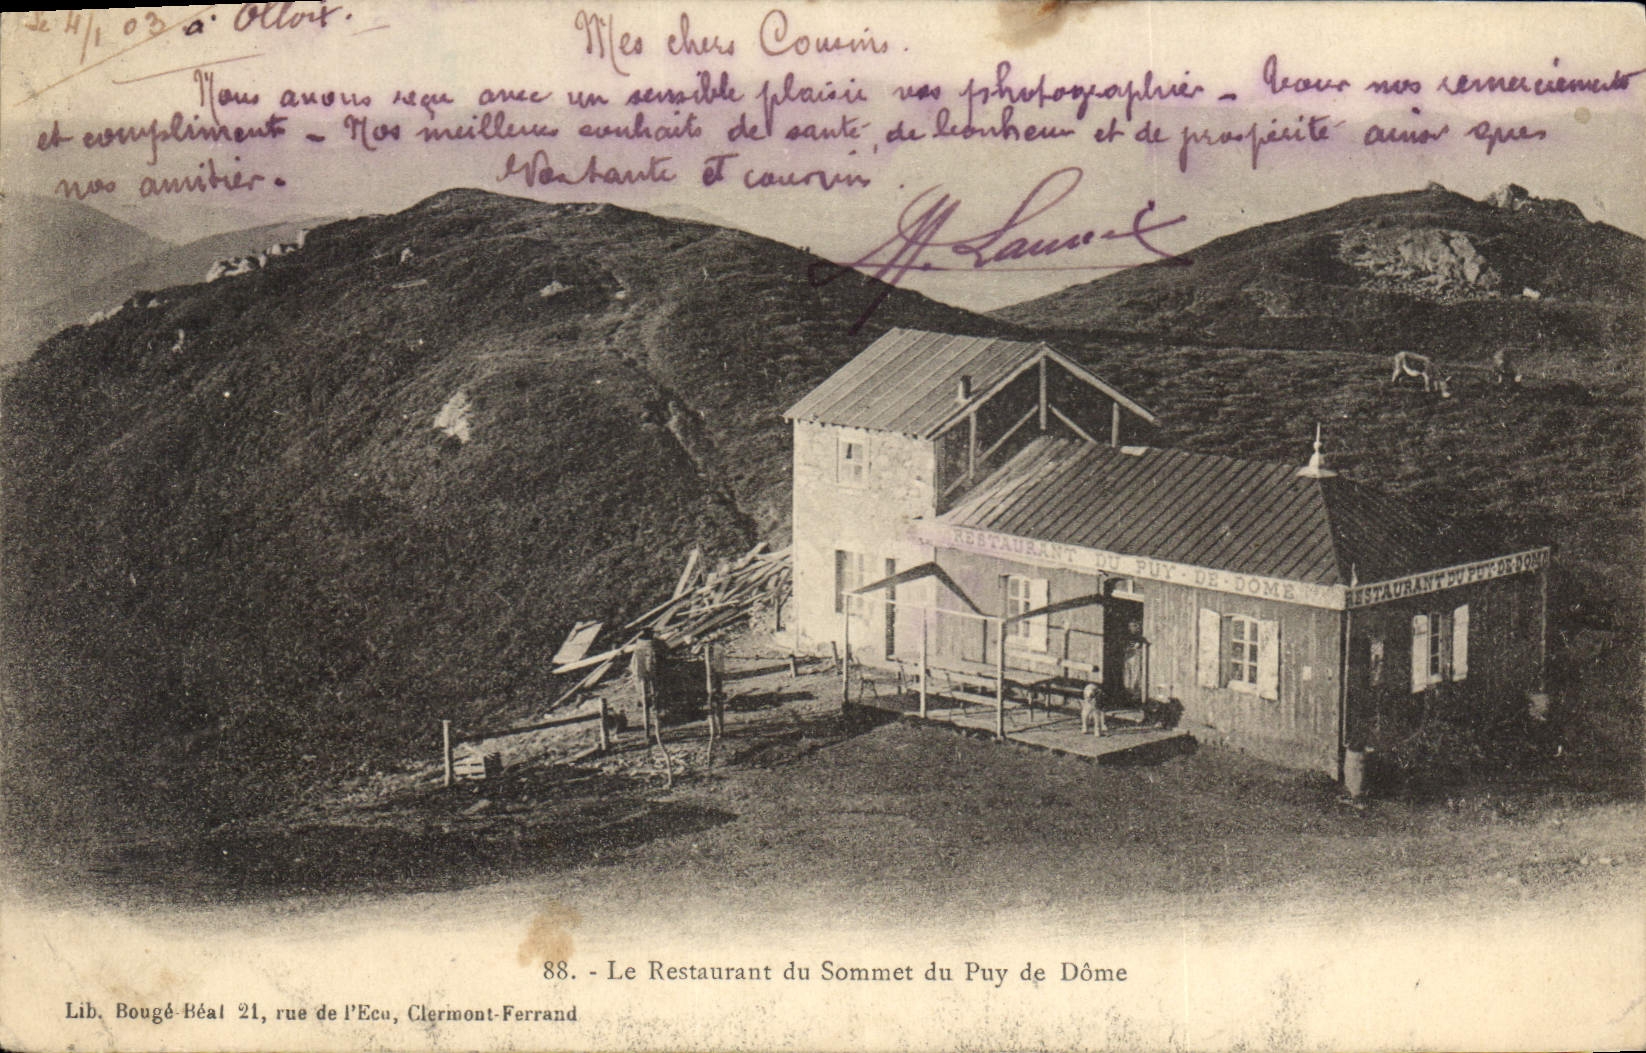 Le 4/1 03 à Olloix.
Mes chers Cousins.
Nous avons reçu avec un sensible plaisir vos photographies - Tous nos remerciements
et compliments - Nos meilleurs souhaits de santé, de bonheur et de prospérité ainsi que
nos amitiés.
tante et cousin.
RESTAURANT DU PUY-DE-DOME
RESTAURANT DU PUY-DE-DOME
88. - Le Restaurant du Sommet du Puy de Dôme
Lib. Bougé-Béal 21, rue de l'Ecu, Clermont-Ferrand